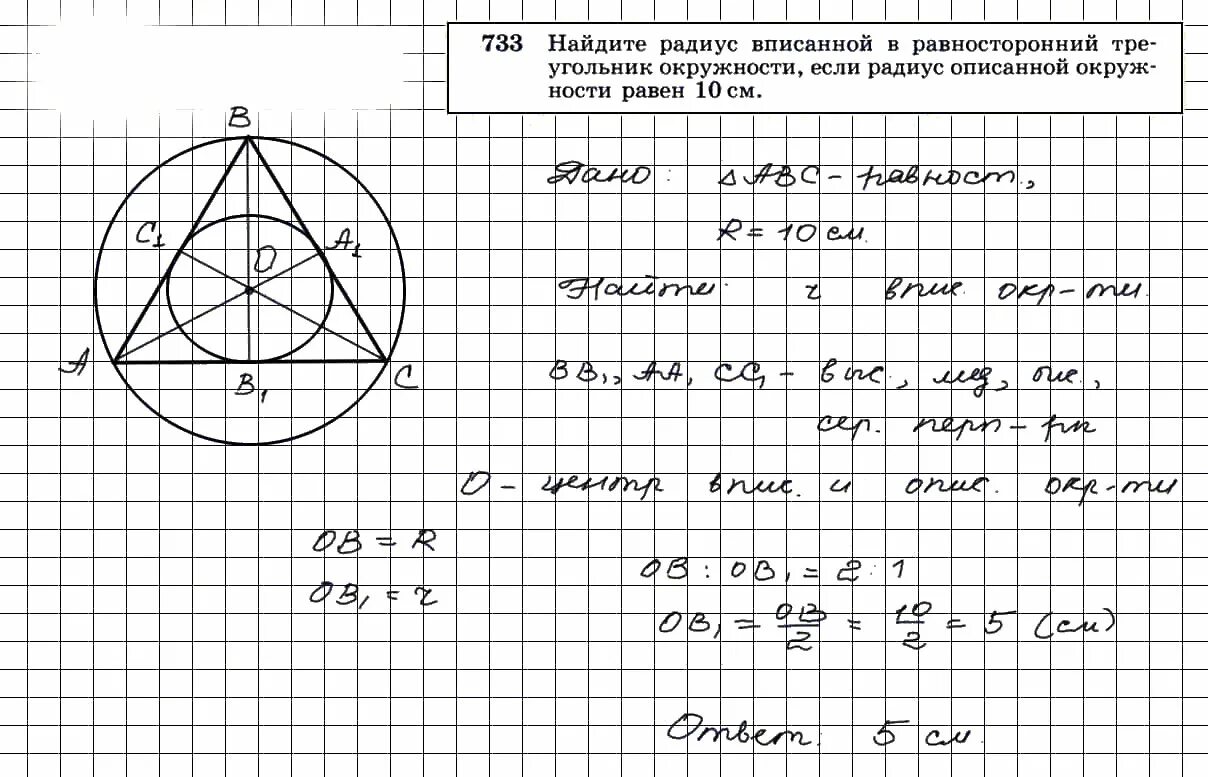 733 Найдите радиус вписанной в равносторонний тре-
угольник окружности, если радиус описанной окруж-
ности равен 10 см.
B
C₁
A₁
O
A
B₁
C
Дано: △ABC – равност.,
R = 10 см.
Найти: r впис. окр-ти.
BB₁, AA₁ CC₁ – выс., мед, бис.,
сер. перп-ры
O – центр впис. и опис. окр-ти
OB = R
OB₁ = r
OB : OB₁ = 2 : 1
OB₁ = OB/2 = 10/2 = 5 (см)
Ответ: 5 см.